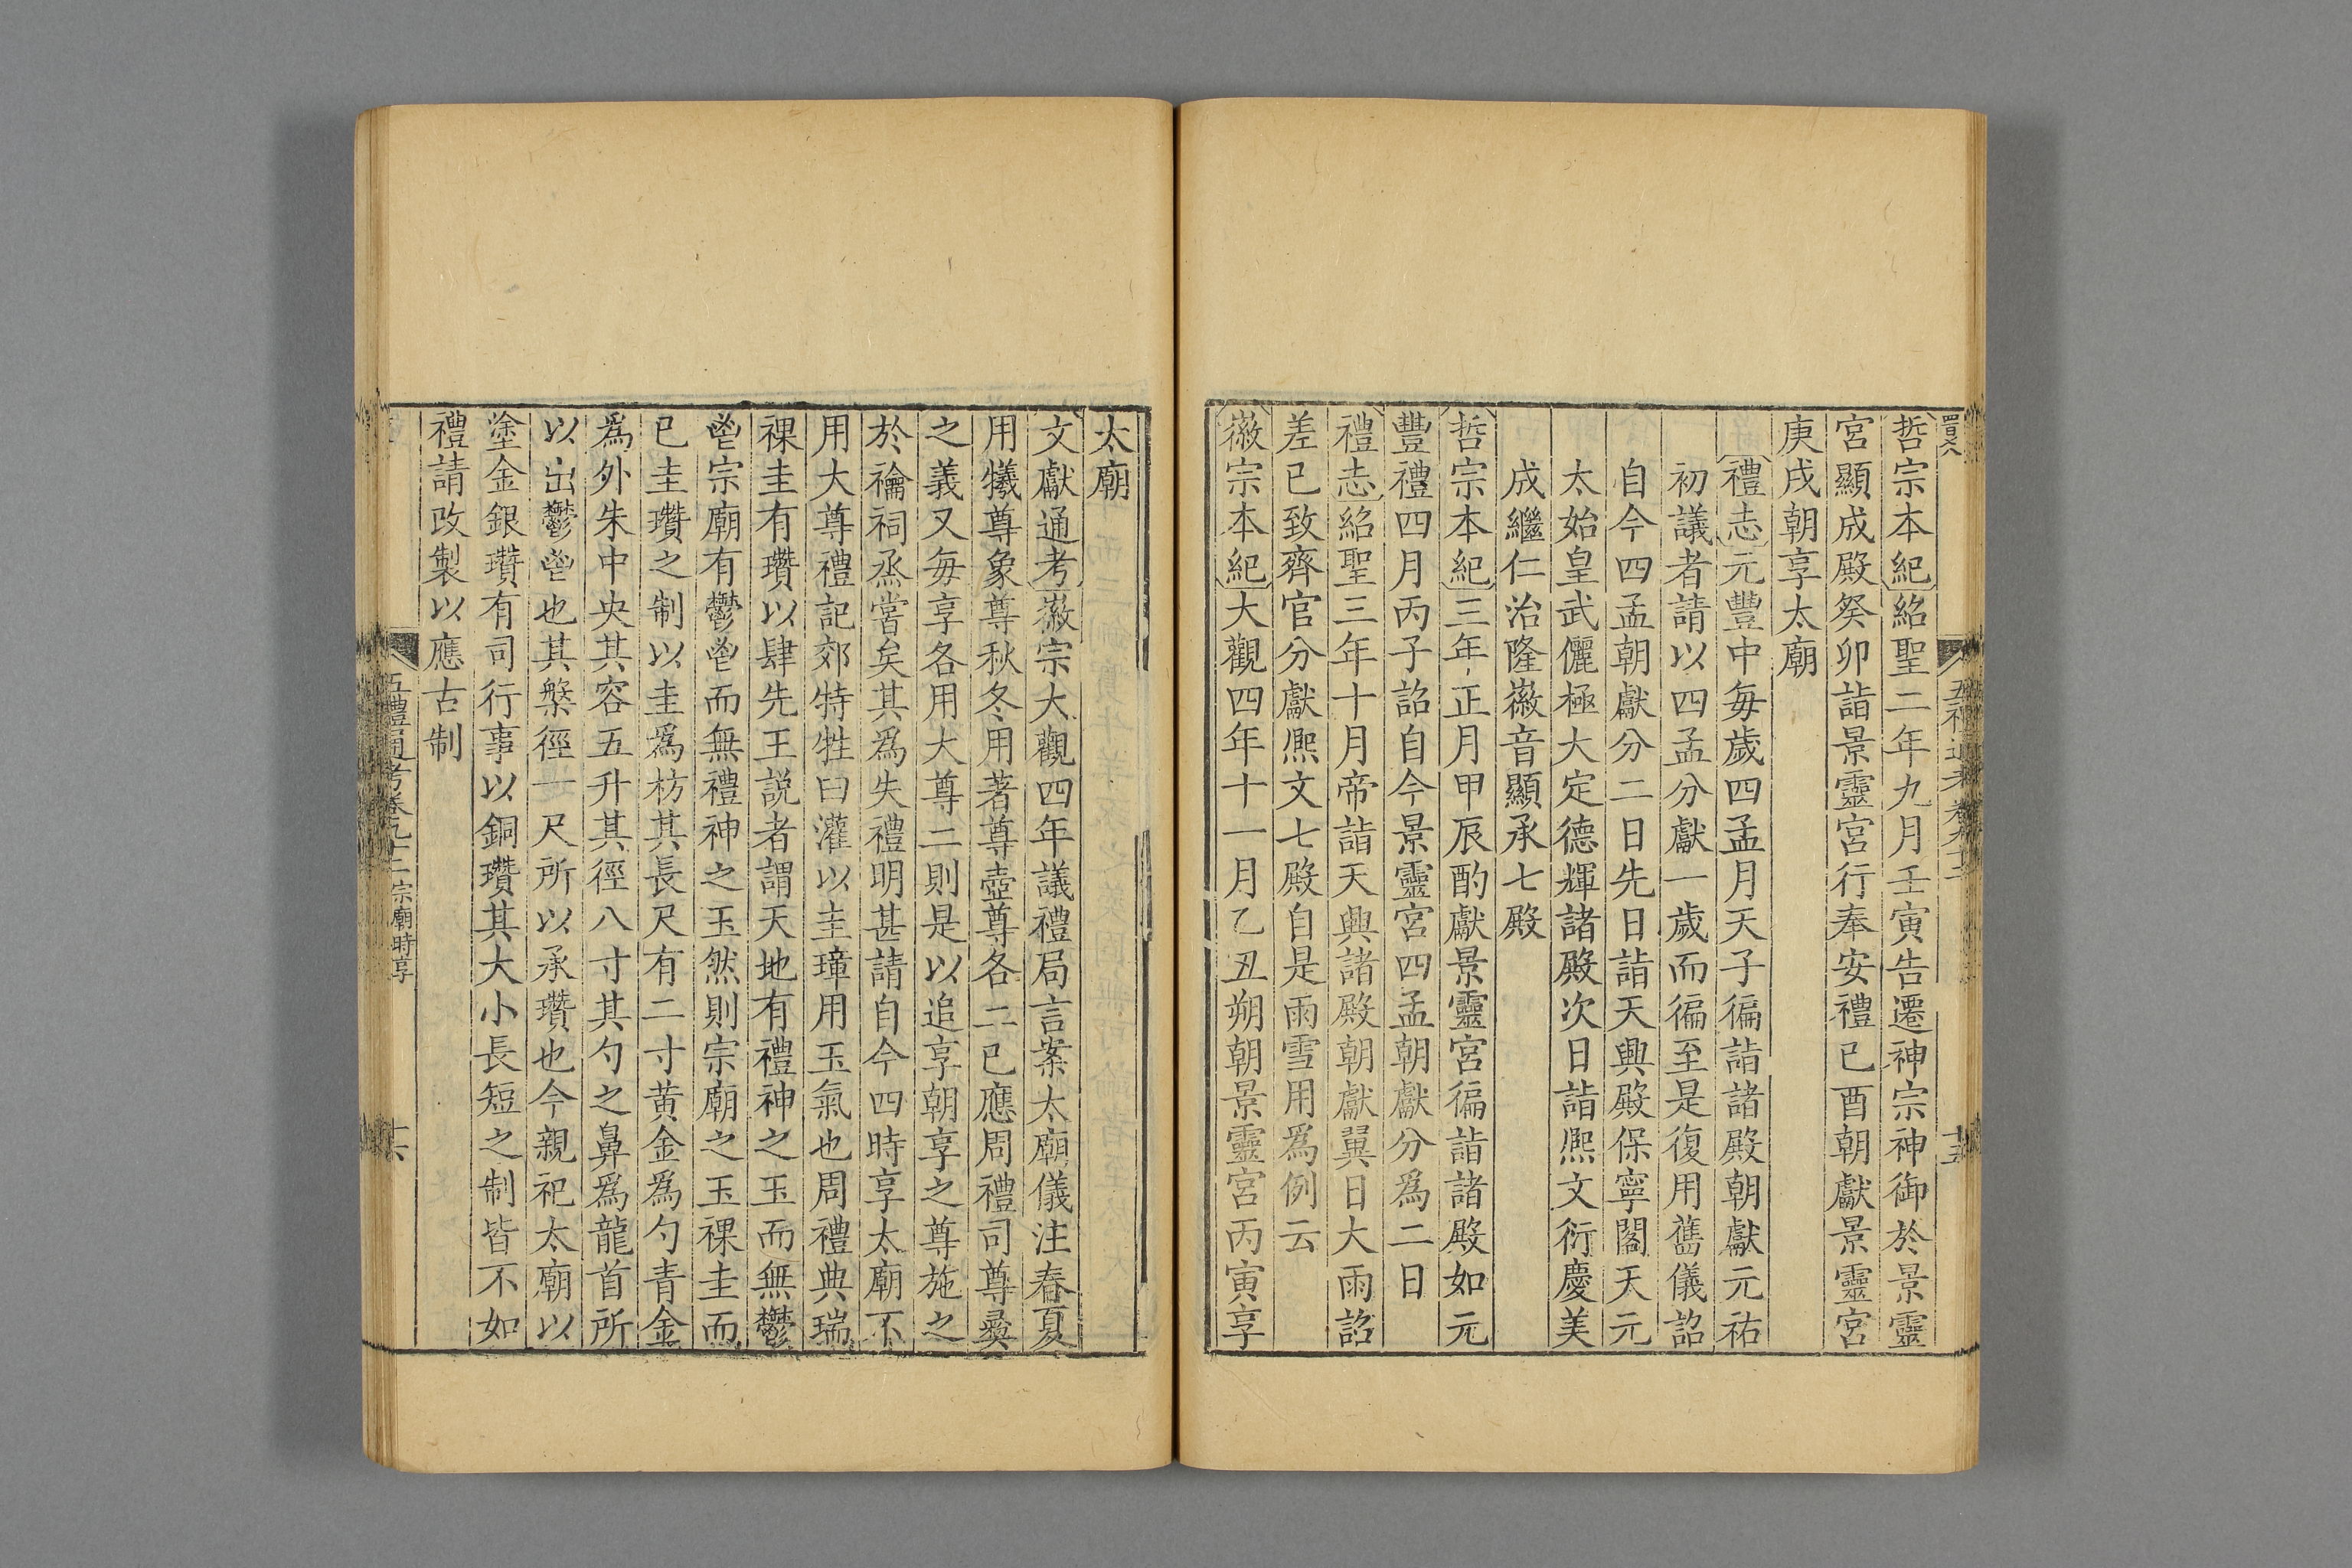 哲宗本紀紹聖二年九月壬寅告遷神宗神御於景靈
宮顯成殿癸卯詣景靈宮行奉安禮已酉朝獻景靈宮
庚戌朝享太廟
禮志元豐中每歲四孟月天子徧詣諸殿朝獻元祐
初議者請以四孟分獻一歲而徧至是復用舊儀詔
自今四孟朝獻分二日先日詣天興殿保寧閣天元
太始皇武儷極大定德輝諸殿次日詣熈文衍慶美
成繼仁治隆徽音顯承七殿
哲宗本紀三年正月甲辰酌獻景靈宮徧詣諸殿如元
豐禮四月丙子詔自今景靈宮四孟朝獻分爲二日
禮志紹聖三年十月帝詣天興諸殿朝獻翼日大雨詔
差已致齊官分獻熈文七殿自是雨雪用爲例云
徽宗本紀大觀四年十一月乙丑朔朝景靈宮丙寅享
太廟
文獻通考徽宗大觀四年議禮局言案太廟儀注春夏
用犧尊象尊秋冬用著尊壺尊各二已應周禮司尊彝
之義又每享各用大尊二則是以追享朝享之尊施之
於禴祠烝嘗矣其爲失禮明甚請自今四時享太廟不
用大尊禮記郊特牲曰灌以圭璋用玉氣也周禮典瑞
祼圭有瓚以肆先王説者謂天地有禮神之玉而無鬱
鬯宗廟有鬱鬯而無禮神之玉然則宗廟之玉祼圭而
已圭瓚之制以圭爲枋其長尺有二寸黃金爲勺青金
爲外朱中央其容五升其徑八寸其勺之鼻爲龍首所
以出鬱鬯也其槃徑一尺所以承瓚也今親祀太廟以
塗金銀瓚有司行事以銅瓚其大小長短之制皆不如
禮請改製以應古制
五禮通考卷九十二 宗廟時享
十六